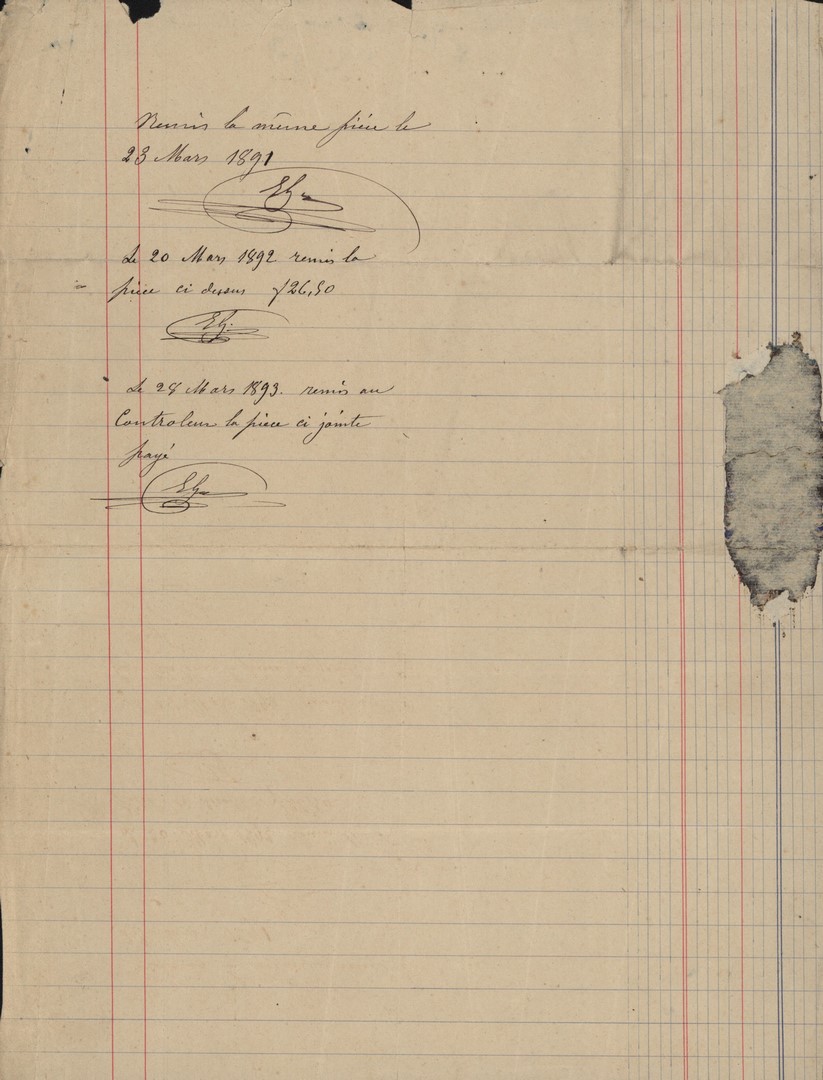 Remis la même pièce le
23 Mars 1891
Le 20 Mars 1892 remis la
pièce ci dessus f 26,50
Le 28 Mars 1893. remis au
Controleur la pièce ci jointe
payé